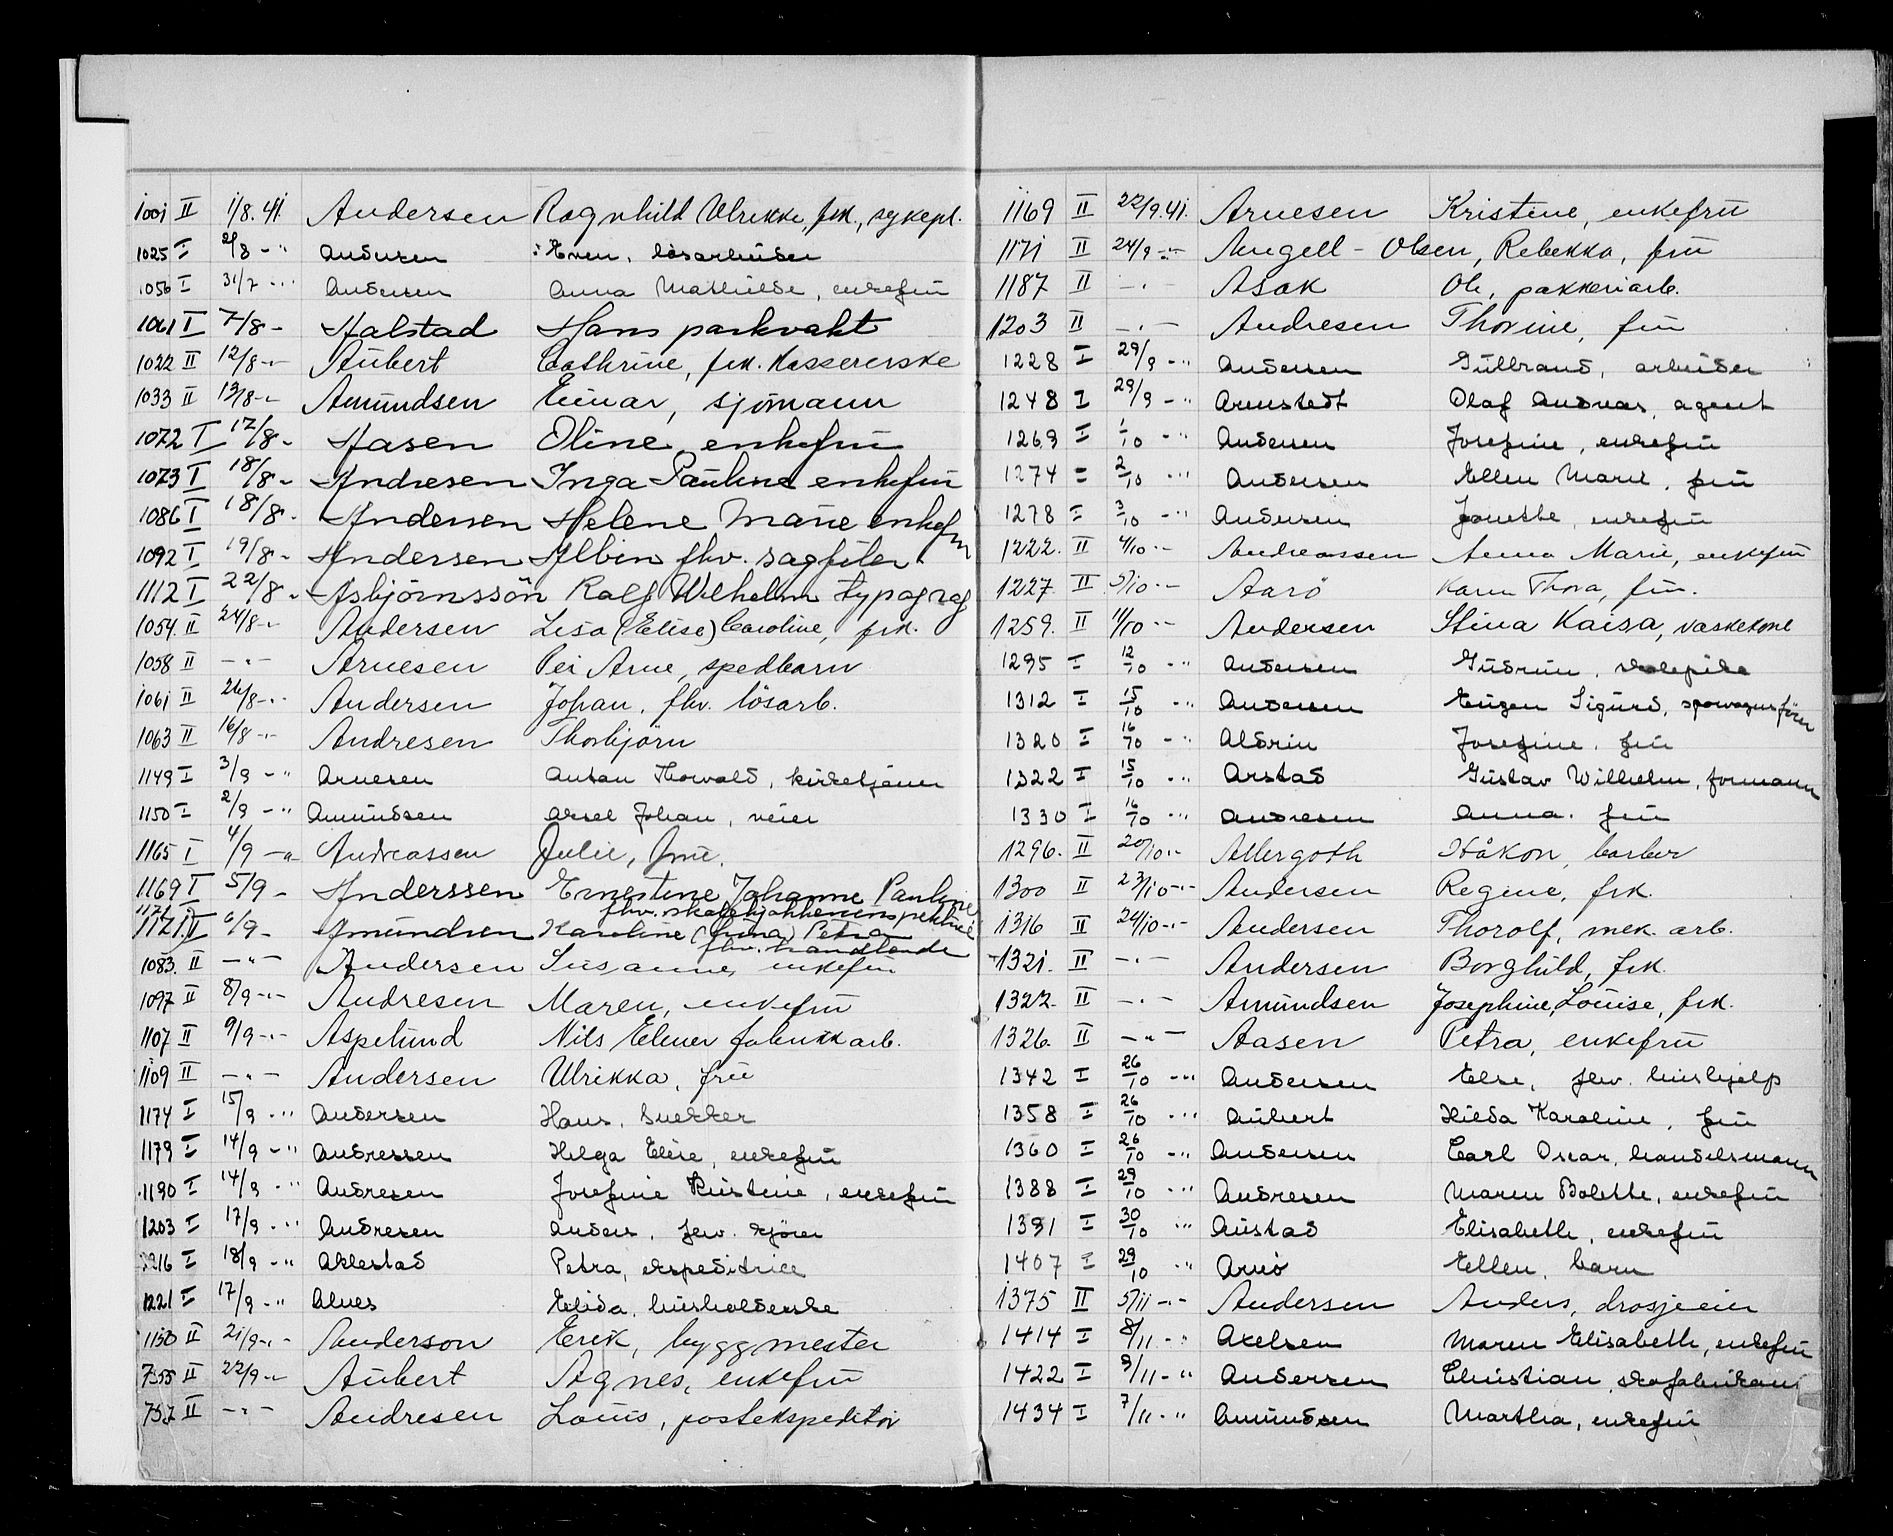 1001 II 1/8. 41. Andersen Ragnhild Ulrikke, frk. sykepl.
1025 I 2/8 - " Andersen Even, løsarbeider
1056 I 31/7 - " Andersen Anna Mathilde, enkefru
1061 I 7/8 - Aalstad Hans parkvakt
1022 II 12/8 - " - Aubert Cathrine, frk. Kassererske
1033 II 13/8 - " - Amundsen Einar, sjömann
1072 I 17/8 - Aasen Oline, enkefru
1073 I 18/8 - Andresen Inga Pauline enkefru
1086 I 18/8 - Andersen Helene Marie enkefru
1092 I 19/8 - Andersen Albin fhv. sagfiler
1112 I 22/8 - Asbjörnssön Ralf Wilhelm typograf
1054. II 24/8 - " - Andersen Lisa (Elise) Caroline, frk.
1058 II - " - Arnesen Per Arne, spedbarn
1061 II 26/8 - " - Andersen Johan, fhv. lösarb.
1063 II 16/8 - " - Andresen Thorbjörn
1149 I 3/9 - " Arnesen Anton Thorvald, kirketjener
1150 I 2/9 - " Amundsen Aksel Johan, veier
1165 I 4/9 - " Andreassen Julie, fru.
1169 I 5/9 - Anderssen Ernestine Johanne Pauline
fhv. skolekjökkeninspektrise
1171 I 6/9 - Amundsen Karoline (Lina) Petra
fhv. handlende
1083. II - " - Andersen Susanne, enkefru
1097 II 8/9 - " - Andresen Maren, enkefru
1107 II 9/9 - " - Aspelund Nils Elmer fabrikkarb.
1109 II - " - Andersen Ulrikka, frue
1174 I 15/9 - " Andersen Hans, snekker
1179 I 14/9 - " Andressen Helga Elise, enkefru
1190 I 14/9 - " Andresen Josefine Kristine, enkefru
1203 I 17/9 - " Andresen Anders, fhv. kjörer
1216 I 18/9 - " Aklestad Petra, ekspeditrice
1221 I 17/9 - " Alnes Elida, husholderske
1150 II 21/9 - " - Anderson Erik, byggmester
II 22/9 - " - Aubert Agnes, enkefru
II - " - Andresen Louis, postekspeditör
1169 II 22/9. 41. Arnesen Kristine, enkefru
1171 II 24/9 - " - Angell - Olsen, Rebekka, fru
1187 II - " - Asak Ole, pakkeriarb.
1203 II - " - Andresen Thorine, fru
1228 I 29/9 - " Andersen Gulbrand, arbeider
1248 I 29/9 - " Arnstedt Olaf Andreas, agent
1269 I 1/10 - " Andersen Josefine, enkefru
1274 = 2/10 - " Andersen Ellen Marie, fru
1278 I 3/10 - " Andersen Jonette, enkefru
1222. II 4/10 - " - Andreassen Anna Marie, enkefru
1227 II 5/10 - " - Aarö Karen Thora, fru.
1259. II 11/10 - " - Andersen Stina Kaisa, vaskekone
1295 I 12/10 - " Andersen Gudrun, skolepike
1312 I 15/10 - " Andersen Eugen Sigurd, sporvognsförer
1320 I 16/10 - " Aldrin Josefine, fru
1322 I 15/10 - " Arstad Gustav Wilhelm, formann
1330 I 16/10 - " Andresen Anna, fru
1296. II 20/10 - " - Allergoth Håkon, barber
1300 II 23/10 - " - Andersen Regine, frk.
1316 II 24/10 - " - Andersen Thorolf, mek. arb.
1321. II - " - Andersen Borghild, frk.
1322. II - " - Amundsen Josephine, Louise, frk.
1326. II - " - Aasen Petra, enkefru
1342 I 26/10 - " Andersen Else, fhv. hushjelp
1358 I 26/10 - " Aubert Hilda Karoline, fru
1360 I 26/10 - " Andersen Carl Oscar, handelsmann
1388 I 29/10 - " Andresen Maren Bolette, enkefru
1391 I 30/10 - " Austad Elisabeth, enkefru
1407 I 29/10 - " Arnö Ellen, barn
1375 II 5/11 - " - Andersen Anders, drosjeeier
1414 I 8/11 - " Axelsen Maren Elisabeth, enkefru
1422 I 9/11 - " Andersen Christian, skofabrikant
1434 I 7/11 - " Amundsen Martha, enkefru